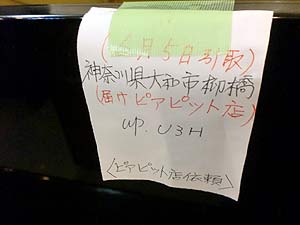 (2月5日引取)
神奈川県大和市柳橋
(届けピアピット店)
up. U3H
〈ピアピット店依頼〉